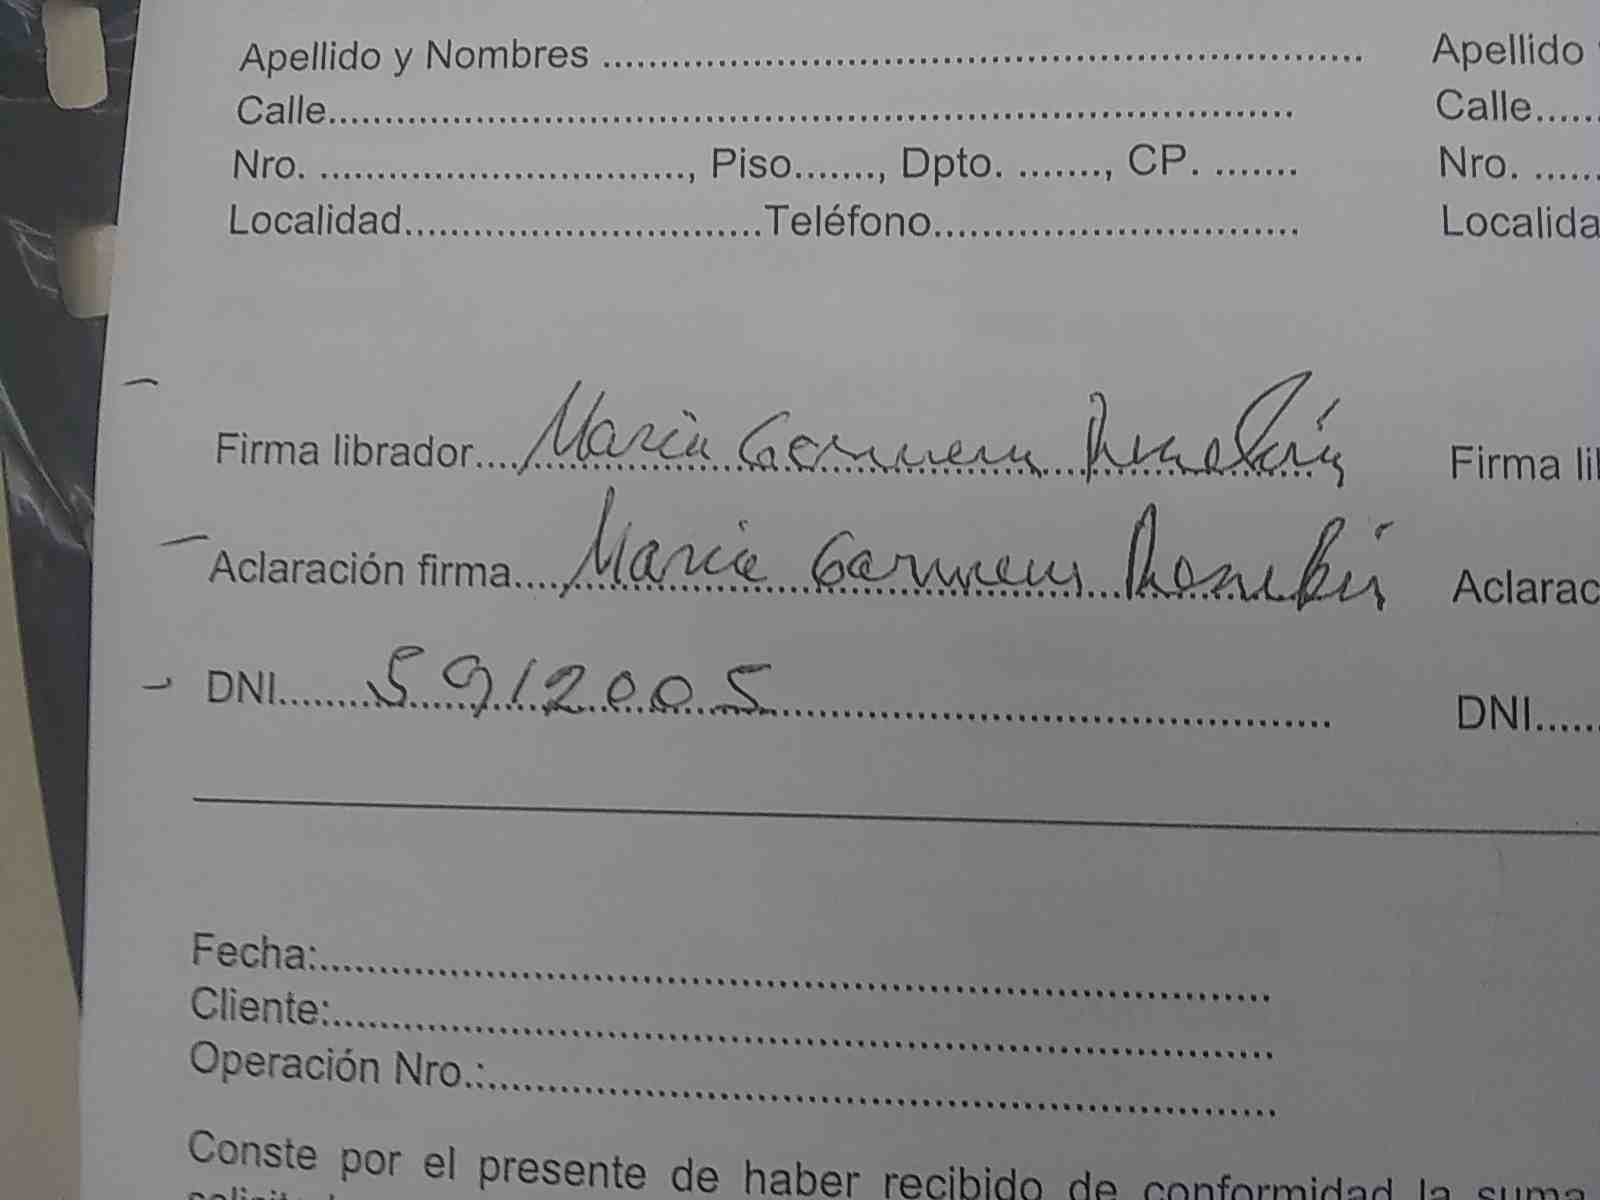 Apellido y Nombres ........................................................................ Apellido
Calle........................................................................................ Calle......
Nro. ................................., Piso......., Dpto. ........, CP. ........ Nro. ......
Localidad................................Teléfono................................. Localida
Firma librador.... Maria Carmen Firma li
Aclaración firma.... Maria Carmen Aclarac
DNI........ 5912005 ........................................ DNI......
Fecha:........................................................................................
Cliente:......................................................................................
Operación Nro.:..........................................................................
Conste por el presente de haber recibido de conformidad la suma